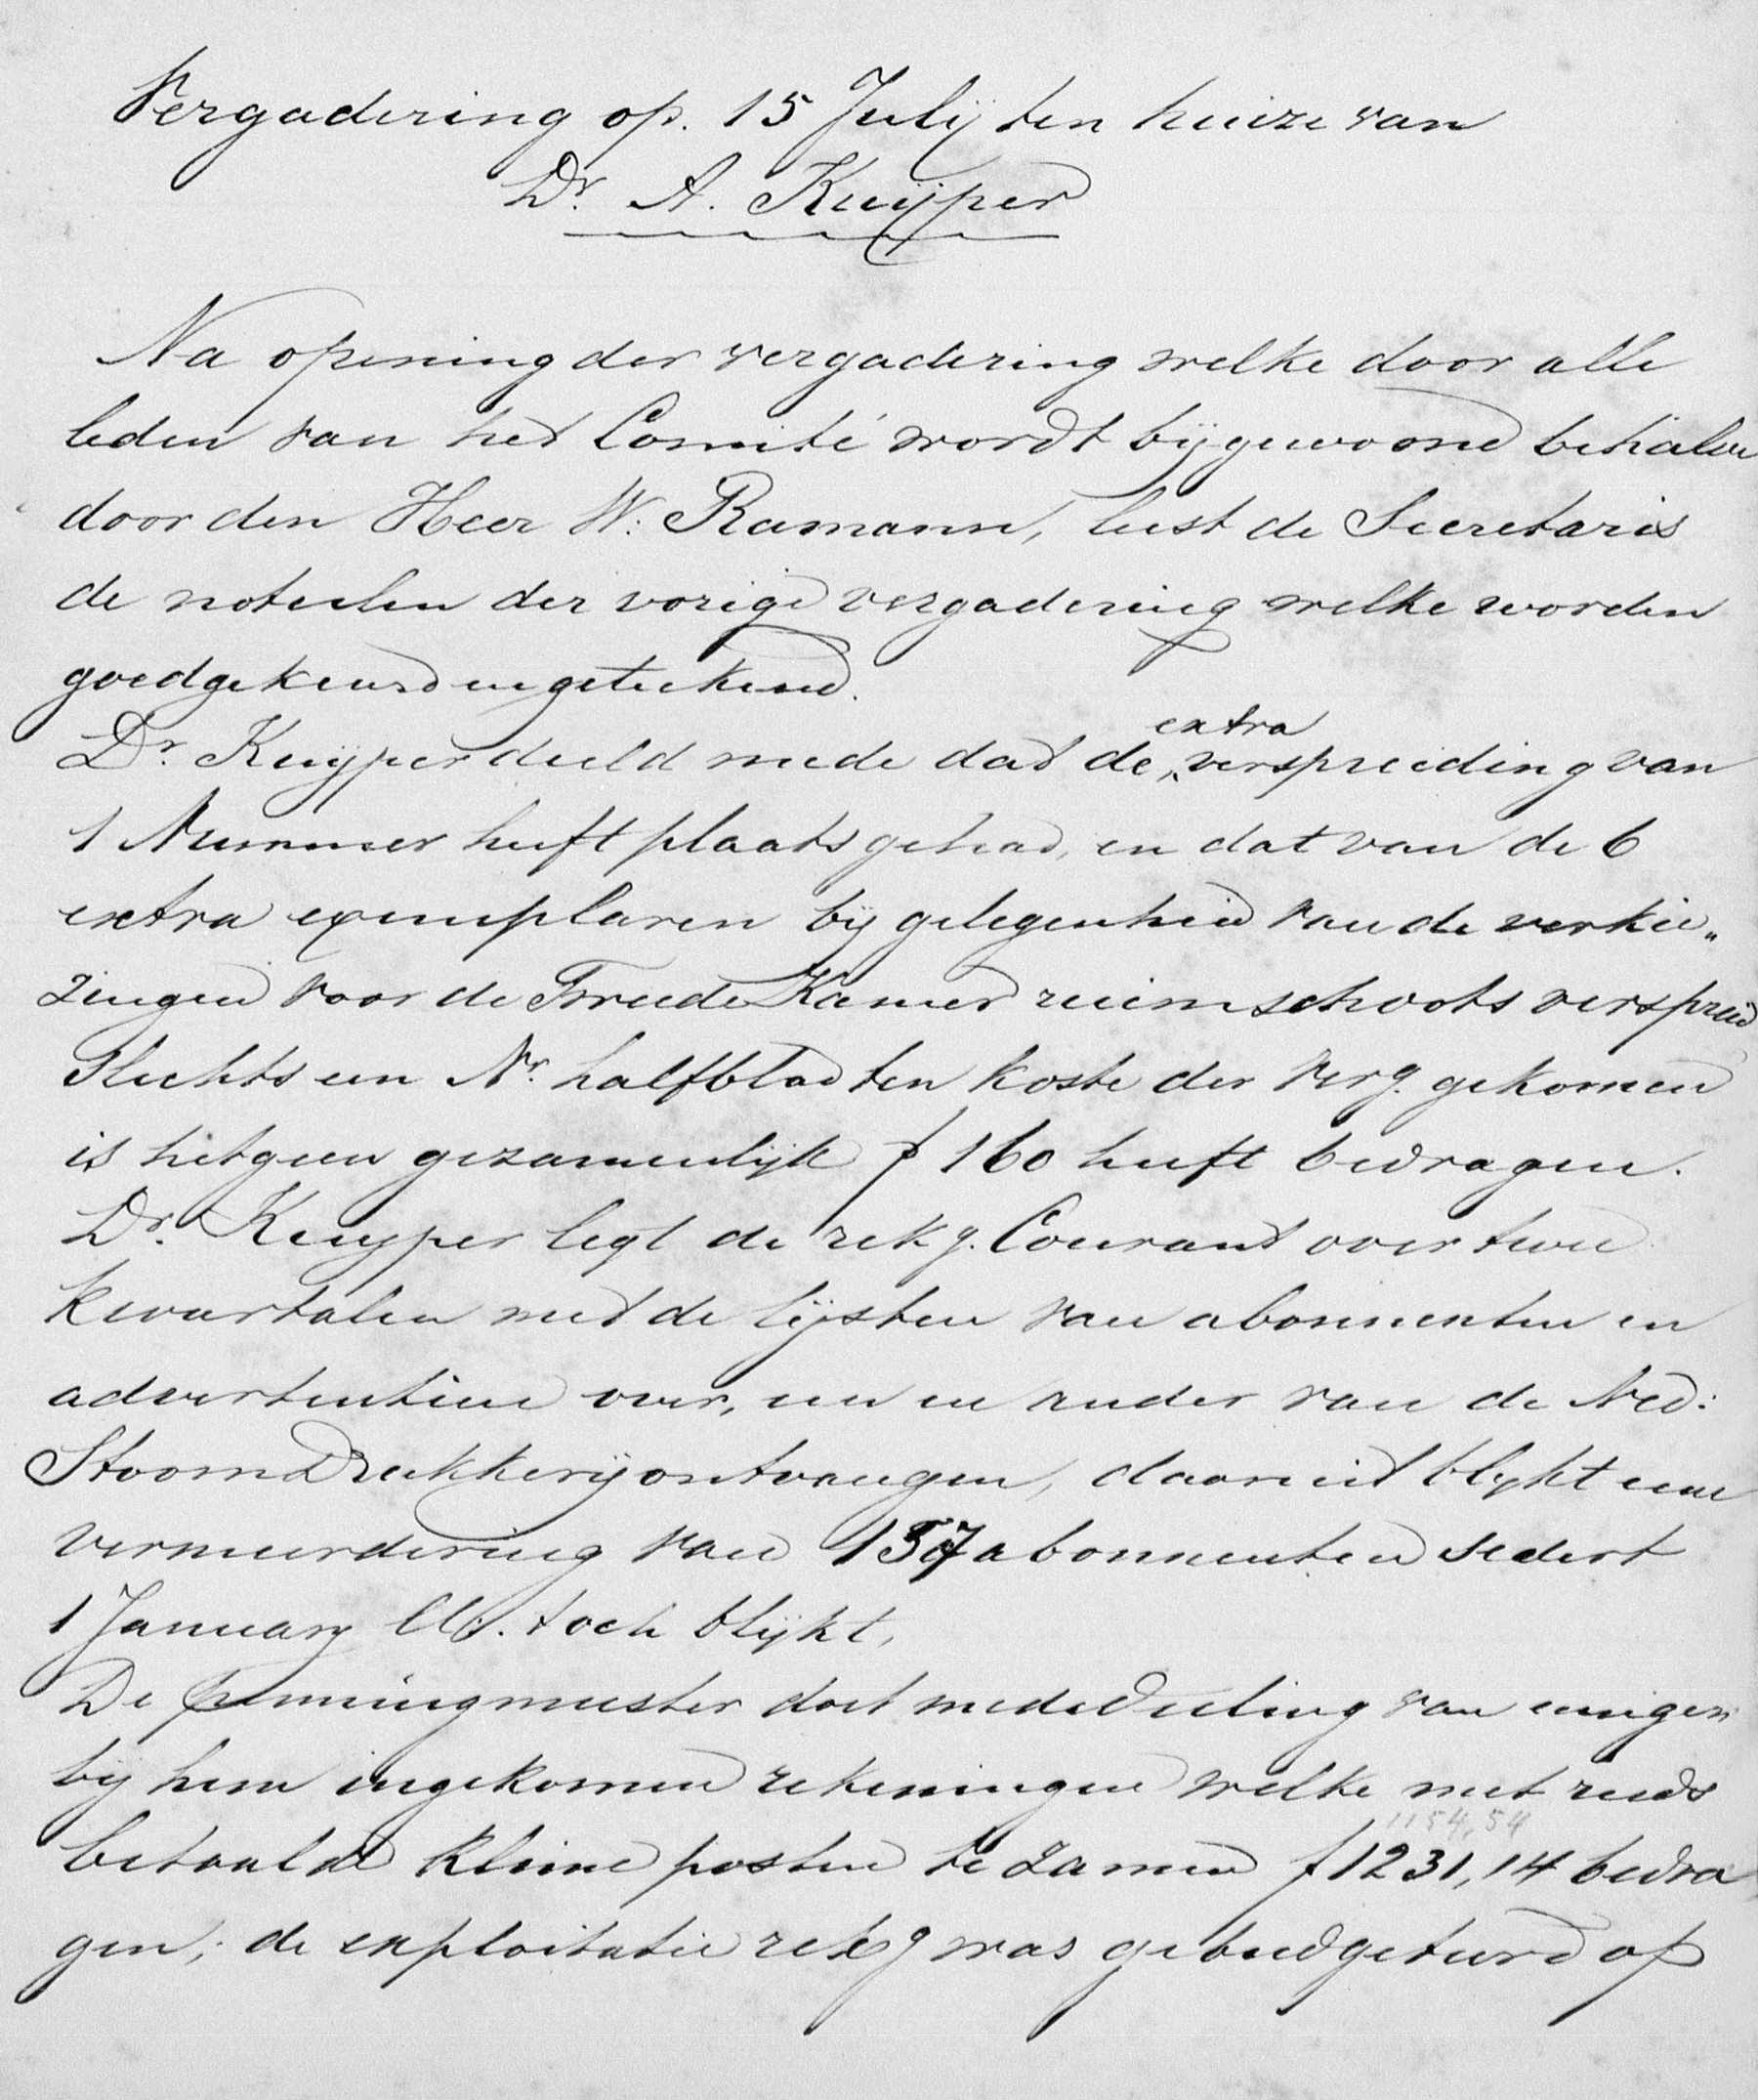 Vergadering op. 15 Julij ten huize van
Dr. A. Kuijper
Na opening der vergadering welke door alle
leden van het Comité wordt bijgewoond behalve
door den Heer W: Ramann, leest de Secretaris
de notulen der vorige vergadering welke worden
goedgekeurd en geteekend.
extra
Dr. Kuijper deeld mede dat de verspreiding van
1 Nummer heeft plaats gehad, en dat van de 6
extra exemplaren bij gelegenheid van de verkie„
zingen voor de Tweede Kamer ruimschoots verspreid
Slechts een Nr. halfblad ten koste der Verg. gekomen
is hetgeen gezamenlijk f 160 heeft bedragen.
Dr. Kuyper legt de rekg. Courant over twee
kwartalen met de lijsten van abonnenten en
advertentien over, een en ander van de Ned:
StoomDrukkerij ontvangen, daaruit blijkt eene
vermeerdering van 157 abonnenten sedert
1 January ll. toch blijkt,
De penningmeester doet mededeeling van eenigen
bij hem ingekomen rekeningen welke met reeds
1154,54
betaalde kleine posten te zamen f 1231,14 bedra
gen; de exploitatie rekg was gebudgeteerd op